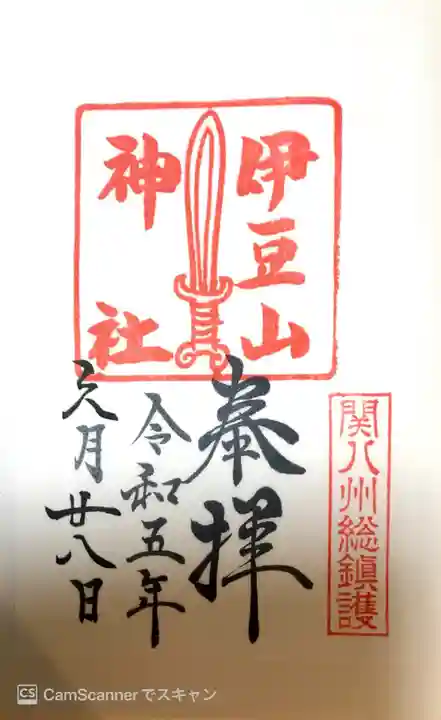 伊豆山
神社
関八州総鎮護
奉拝
令和五年
六月廿八日
CS CamScannerでスキャン